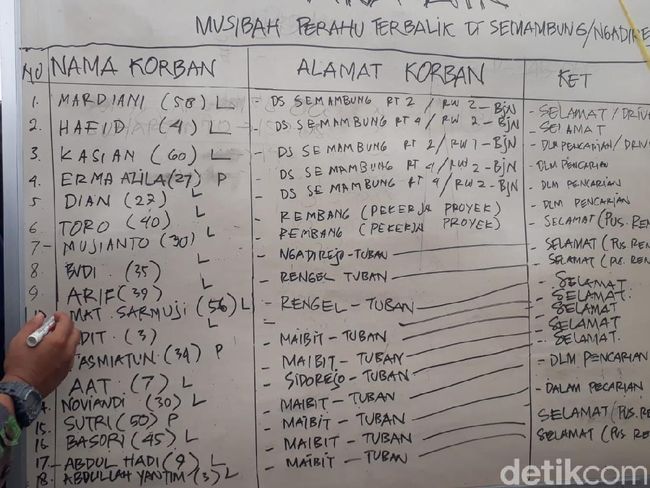 MUSIBAH PERAHU TERBALIK DI SEMAMBUNG/NGADIRE
NO NAMA KORBAN ALAMAT KORBAN KET
1. MARDIANI (58) L - DS SEMAMBUNG RT 2 / RW 2 - BJN - SELAMAT / DRIV
2. HAFID (4) L - DS SEMAMBUNG RT 4 / RW 2 - BJN - SELAMAT
3. KASIAN (60) L - DS SEMAMBUNG RT 2 / RW 1 - BJN - DLM PENCARIAN / DRIV
4. ERMA ALILA (27) P - DS SEMAMBUNG RT 4 / RW 2 - BJN - DLM PENCARIAN
5 DIAN (27) L - DS SEMAMBUNG RT 4 / RW 2 - BJN - DLM PENCARIAN
6 TORO (40) L - REMBANG (PEKERJA PROYEK) - DLM PENCARIAN
7- MUJIANTO (30) L - REMBANG (PEKERJA PROYEK) - SELAMAT (PUS. REN
8. BUDI. (35) - NGADIREJO - TUBAN - SELAMAT (PUS REN
9. ARIF (39) L - RENGEL TUBAN - SELAMAT (PUS. REN
MAT SARMUJI (56) L - RENGEL - TUBAN - SELAMAT
DIT. (3) L - MAIBIT - TUBAN - SELAMAT.
ASMIATUN (34) P - MAIBIT - TUBAN - SELAMAT
AAT. (7) L - SIDOREJO - TUBAN - SELAMAT
NOVIANDI (30) L - MAIBIT - TUBAN - SELAMAT.
15. SUTRI (50) P - MAIBIT - TUBAN - DLM PENCARIAN
16. BASORI (45) L - MAIBIT - TUBAN - DALAM PECARIAN
17- ABDUL HADI (9) L - MAIBIT - TUBAN - SELAMAT (PUS. RE
18. ABDULLAH YANTIM (3) L SELAMAT (PUS. RE
detikcom